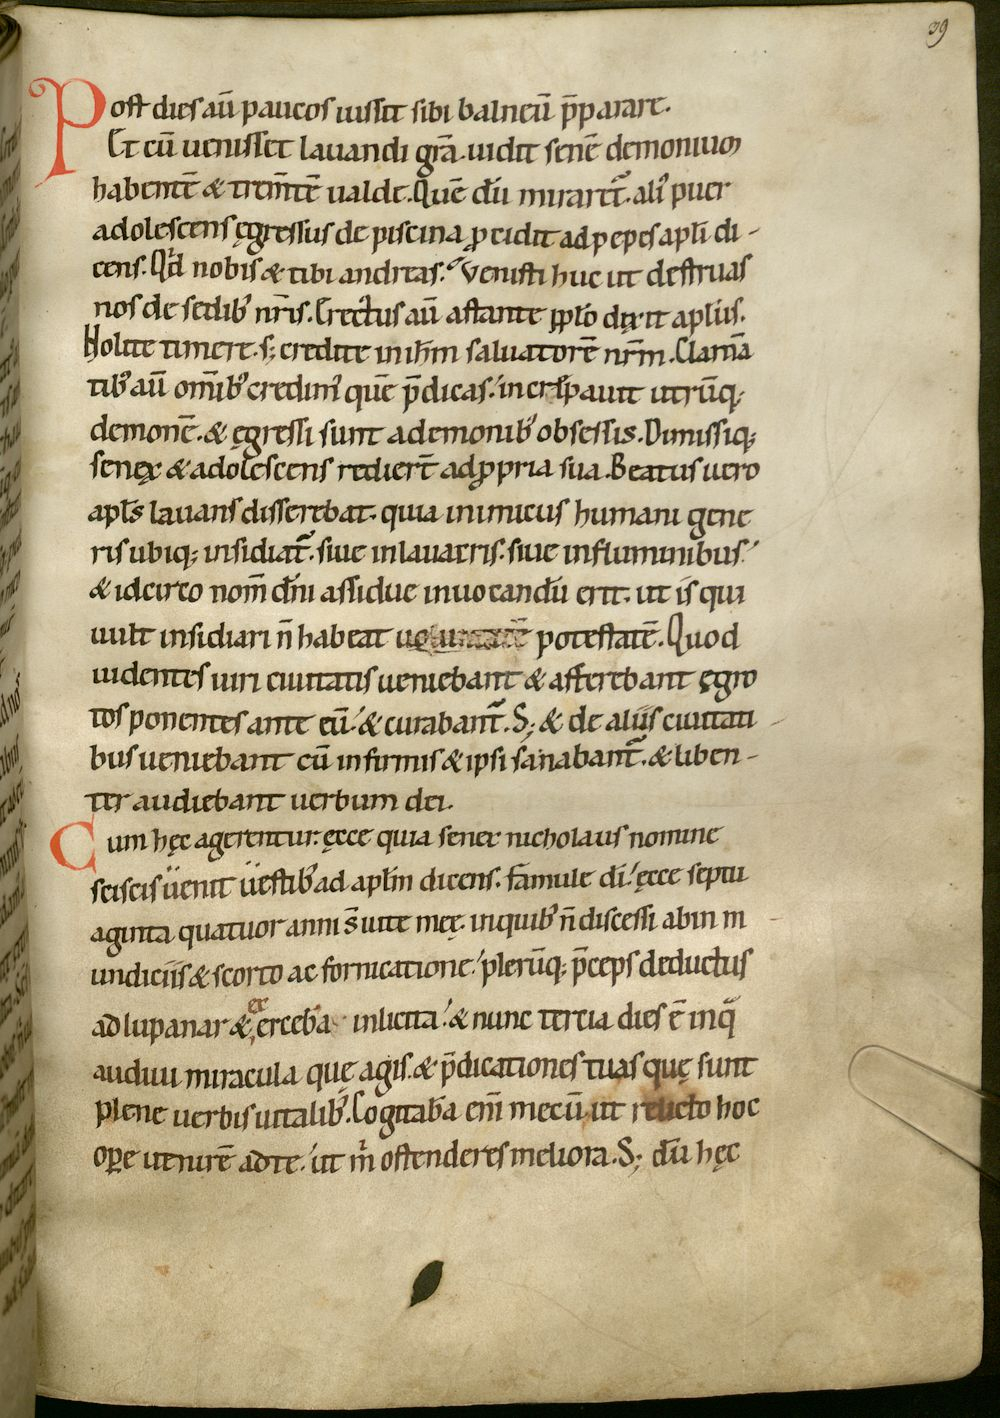 39
Post dies aū paucos iussit sibi balneū p̄parare.
Et cū uenisset lauandi grā. uidit senē demonium
habentē & trem̄tē ualde. Quē dū miraret᷑. ali᷒ puer
adolescens ęgressus de piscina ꝓcidit ad pepes apl̄i di-
cens. Qd̓ nobis & tibi andreas. Venisti huc ut destruas
nos de sedib᷒ nr̄is. Erectus aū astante pp̄lo dixit apl̄us.
Nolite timere. s; credite in ih̄m saluatorē nr̄m. Clamā
tib᷒ aū om̄ib᷒ credim᷒ quę p̄dicas. increpauit utrūq;
demonē. & ęgressi sunt a demonib᷒ obsessis. Dimissiq;
senex & adolescens rediert̄ ad ꝓpria sua. Beatus uero
apl̄s lauans disserebat. quia inimicus humani gene
ris ubiq; insidiat᷑. siue in lauacris. siue in fluminibus.
& idcirco nom̄ dn̄i assidue inuocandū erit. ut is qui
uult insidiari n̄ habeat potestatē. Quod
uidentes uiri ciuitatis ueniebant & afferebant ęgro
tos ponentes ante eū. & curabant᷑. S; & de aliis ciuitati
bus ueniebant cū infirmis & ipsi sanabant᷑. & liben-
ter audiebant uerbum dei.
Cum hęc agerentur. ęcce quia senex nicholaus nomine
scissis uenit uestib᷒ ad apl̄m dicens. famule dī. ęcce septu
aginta quatuor anni s̄ uite meę. in quib᷒ n̄ discessi ab in m
undiciis & scorto ac fornicatione. plerūq; p̄ceps deductus
ad lupanar & exerceba inlicita. & nunc tercia dies ē in qͣ
audiui miracula quę agis. & p̄dicationes tuas quę sunt
plene uerbis uitalib᷒. Cogitaba eni̅ mecū ut relicto hoc
oꝑe uenirē ad te. ut m̓ ostenderes meliora. S; dū hęc